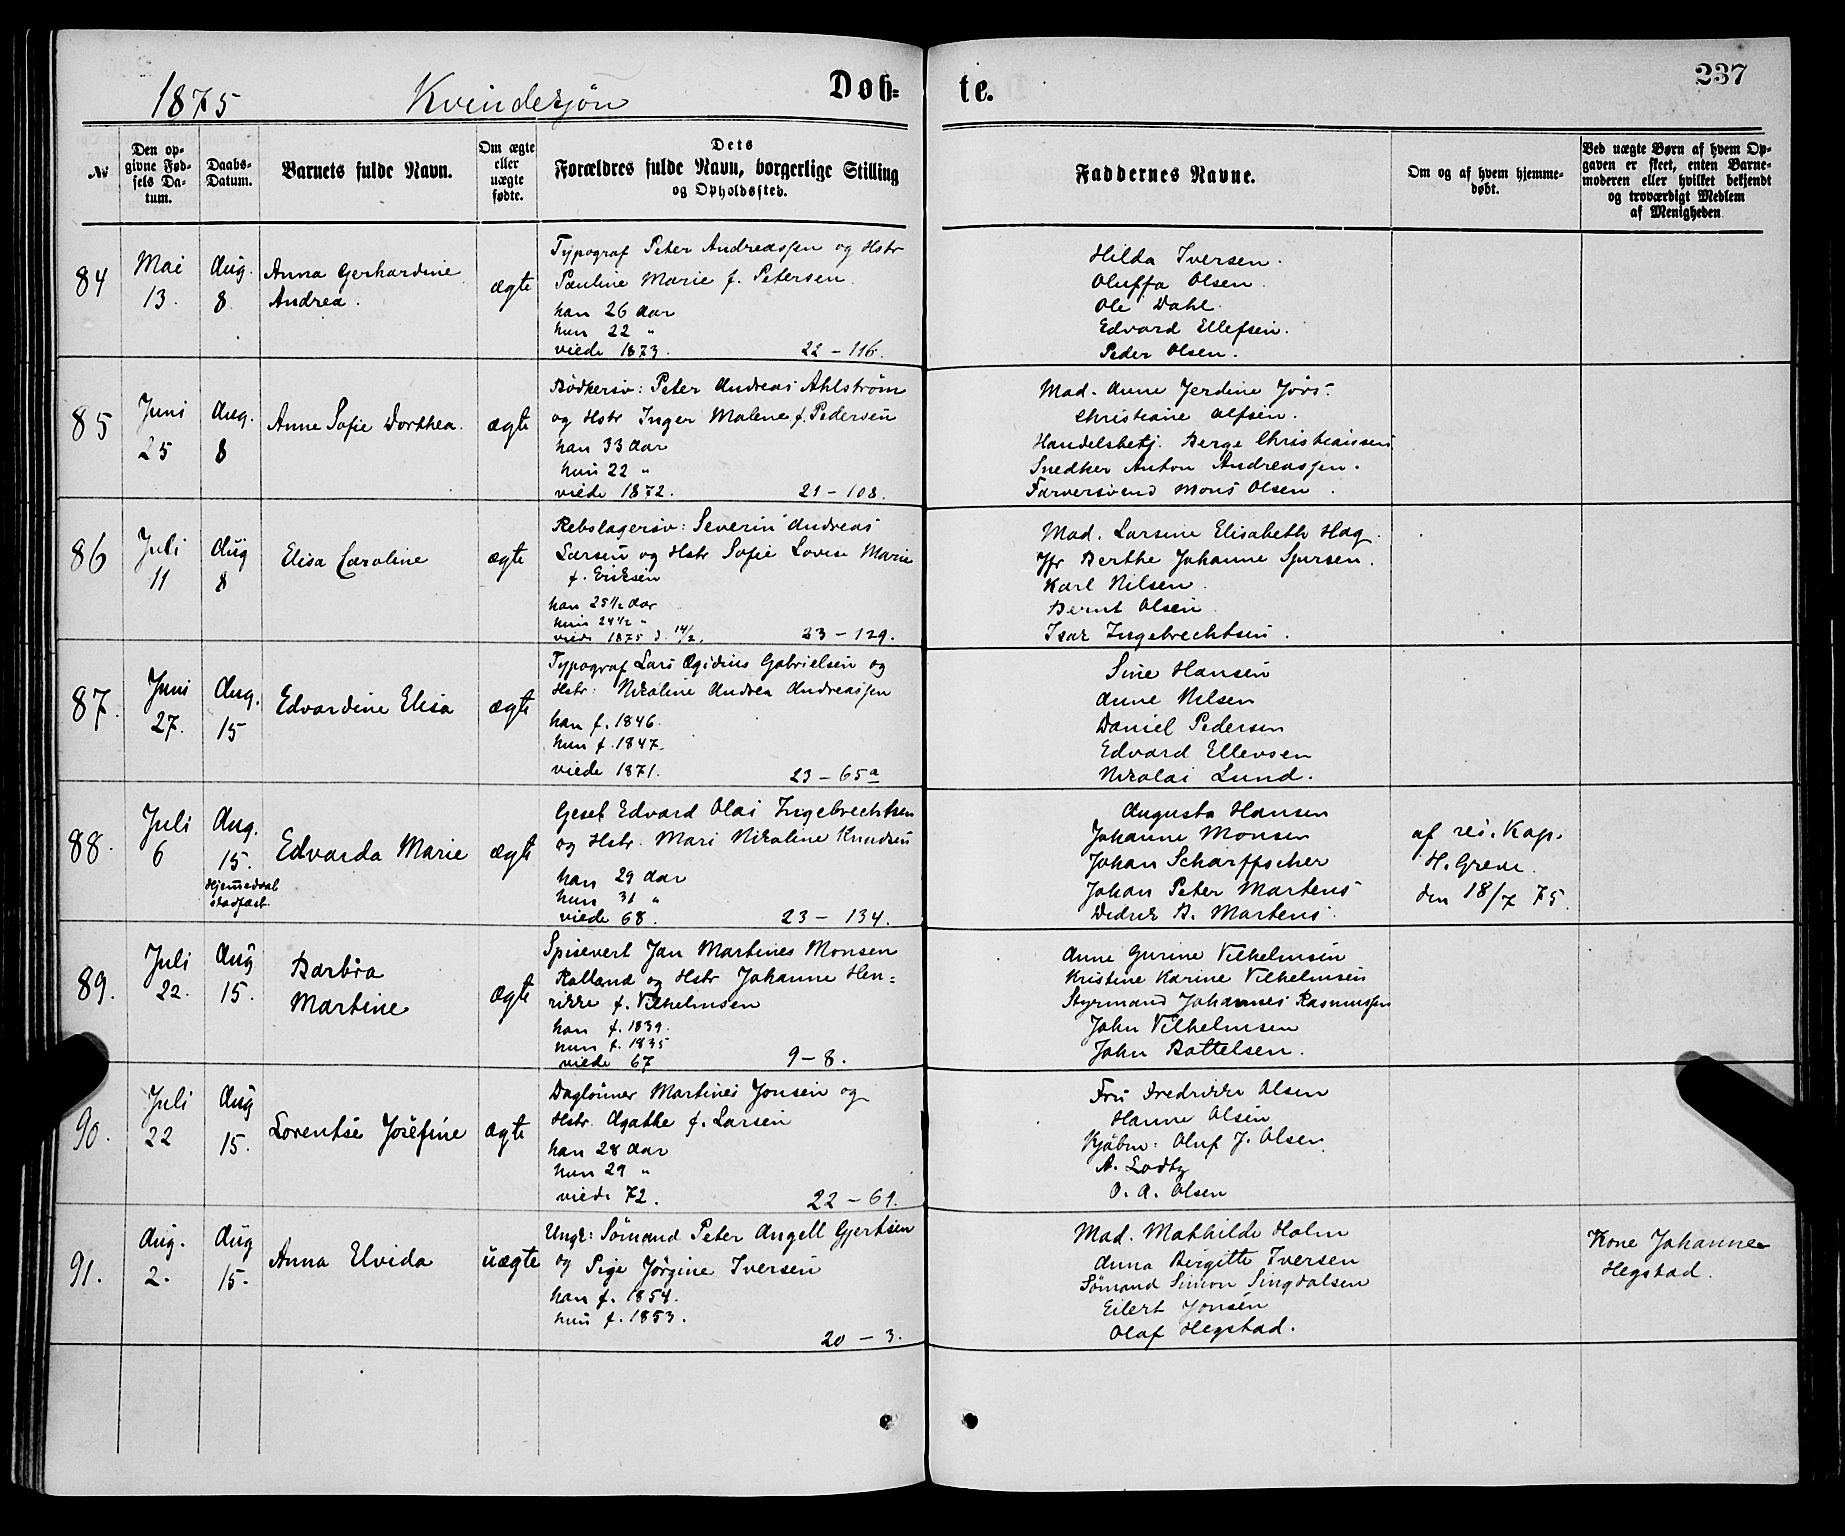 1875 Kvindekjøn Døb= te. 237
№
Den op-
givne Fød-
sels Da-
tum.
Daabs-
Datum.
Barnets fulde Navn.
Om ægte
eller
uægte
fødte.
Dets
Forældres fulde Navn, borgerlige Stilling
og Opholdssted.
Faddernes Navne.
Om og af hvem hjemme-
døbt.
Ved uægte Børn af hvem Op-
gaven er skeet, enten Barne-
moderen eller hvilket bekjendt
og troværdigt Medlem
af Menigheden
84
Mai
13.
Aug.
8
Anna Gerhardine
Andrea.
ægte
Typograf Peter Andreassen og Hstr
Pauline Marie f. Petersen
han 26 Aar
hun 22 "
viede 1873. 22 – 116.
Hilda Iversen.
Oluffa Olsen.
Ole Dahl.
Edvard Ellefsen.
Peder Olsen.
85
Juni
25
Aug.
8
Anne Sofie Dorthea.
ægte
Bødkersv: Peter Andreas Ahlstrøm
og Hstr Inger Malene f. Pedersen
han 33 Aar
hun 22 "
viede 1872. 21 – 108.
Mad. Anne Jerdine Jørs.
Christiane Alfsen.
Handelsbetj. Berge Christianssen
Snedker Anton Andreassen.
Farversvend Mons Olsen.
86
Juli
11
Aug
8
Elisa Caroline
ægte
Rebslagersv: Severin Andreas
Larsen og Hstr Sofie Lovise Marie
f. Eriksen
han 25 1/2 Aar
hun 24 1/2 "
viede 1875 d. 14/2. 23 – 129.
Mad. Larsine Elisabeth Hag.
Jfr Berthe Johanne Spursen.
Karl Nilsen
Bernt Olsen
Isac Ingebrechtsen.
87.
Juni
27.
Aug.
15
Edvardine Elisa
ægte
Typograf Lars Ægidius Gabrielsen og
Hstr: Nikoline Andrea Andreassen
han f. 1846.
hun f. 1847.
viede 1871. 23 – 65a
Sine Hansen
Anne Nilsen
Daniel Pedersen
Edvard Ellevsen
Nikolai Lund.
88.
Juli
6
Aug.
15.
Hjemmedaab
stadfæst
Edvarda Marie
ægte
Gesel Edvard Olai Ingebrechtsen
og Hstr. Mari Nikoline Knudsen
han 29 Aar
hun 31 "
viede 68. 23 – 134.
Augusta Hansen
Johanne Monsen
Johan Scharffscher
Johan Peter Martens
Didrik B. Martens.
af res. Kap.
H. Greve.
den 18/7 75.
89.
Juli
22.
Aug
15.
Barbra
Martine
Ægte
Spisevert Jan Martines Monsen
Kalland og Hstr Johanne Hen=
rikke f. Vilhelmsen
han f. 1839.
hun f. 1835
viede 67 9 – 8.
Anne Gurine Vilhelmsen
Kristine Karine Vilhelmsen
Styrmand Johannes Rasmussen
John Vilhelmsen
John Battelsen.
90.
Juli
22
Aug
15.
Lorentse Josefine
ægte
Daglønner Martines Jonsen og
Hstr. Agathe f. Larsen
han 28 Aar
hun 29 "
viede 72. 22 – 61.
Fru Fredrikke Olsen
Hanne Olsen
Kjøbm: Oluf J. Olsen
A. Lodtz
O. A. Olsen
91.
Aug.
2.
Aug
15.
Anna Elvida
uægte
Ungk: Sømand Peter Angell Gjertsen
og Pige Jørgine Iversen
han f. 1854.
hun f. 1853.
20 – 3.
Mad. Mathilde Holm
Anna Birgitte Iversen
Sømand Simon Singdalsen
Eilert Jonsen
Olaf Hegstad.
Kone Johanne
Hegstad.